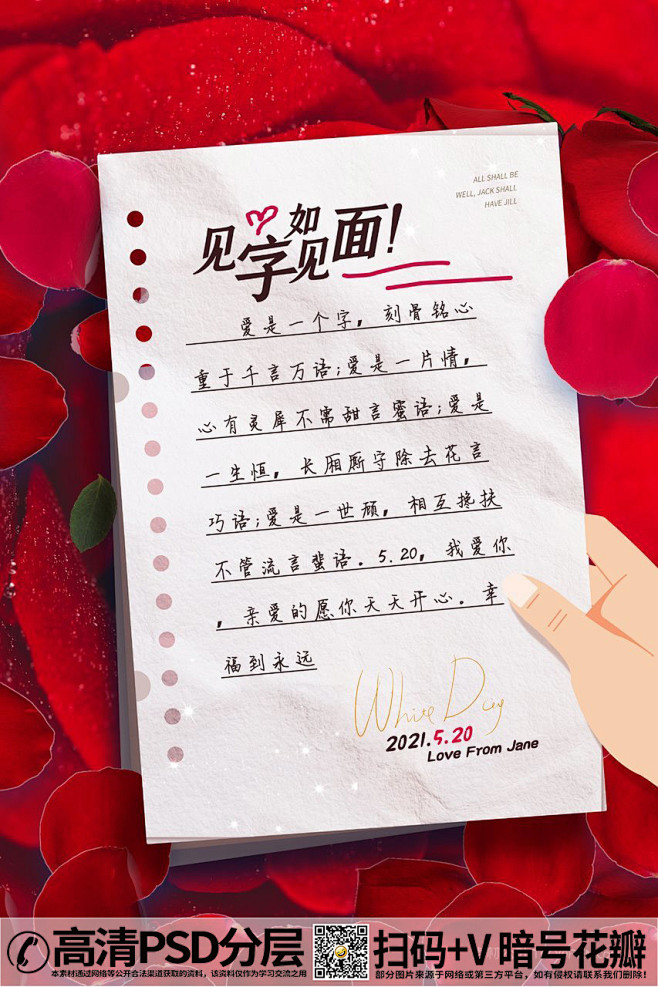 ALL SHALL BE
WELL, JACK SHALL
HAVE JILL
见字如见面!
爱是一个字，刻骨铭心
重于千言万语;爱是一片情，
心有灵犀不需甜言蜜语;爱是
一生恒，长厢厮守除去花言
巧语;爱是一世顾，相互搀扶
不管流言蜚语。5.20，我爱你
，亲爱的愿你天天开心。幸
福到永远
White Day
2021.5.20
Love From Jane
高清PSD分层
本素材通过网络等公开合法渠道获取的资料，该资料仅作为学习交流之用
扫码+V 暗号花瓣
部分图片来源于网络或第三方平台，如有侵权请联系我们删除！